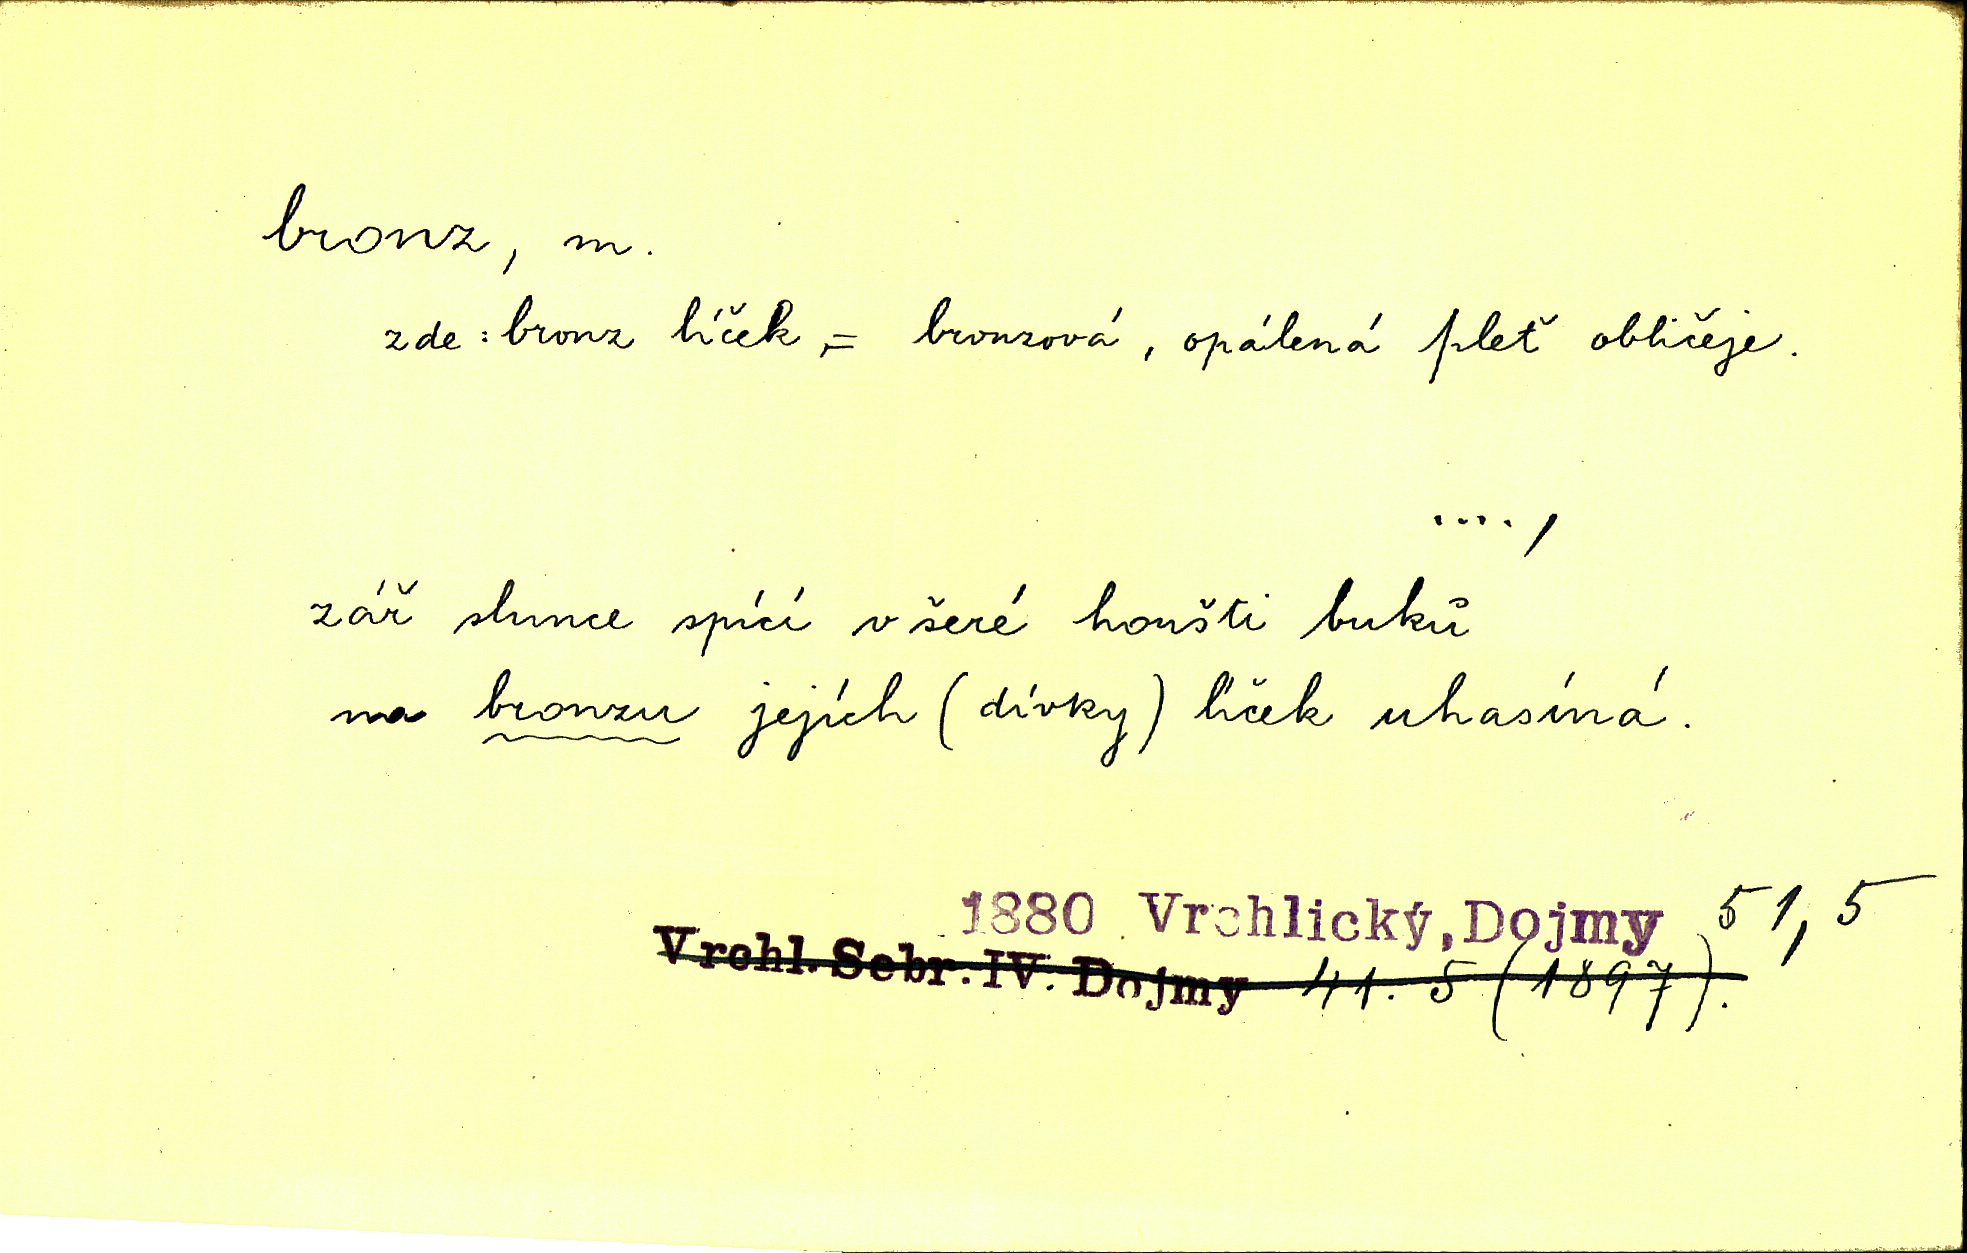 bronz, m.
zde: bronz líček, = bronzová, opálená pleť obličeje.
....,
zář slunce spící v šeré houšti buků
na bronzu jejích (dívky) líček uhasíná.
1880 Vrchlický, Dojmy 51,5
Vrchl. Sebr. IV. Dojmy 41. 5 (1897).